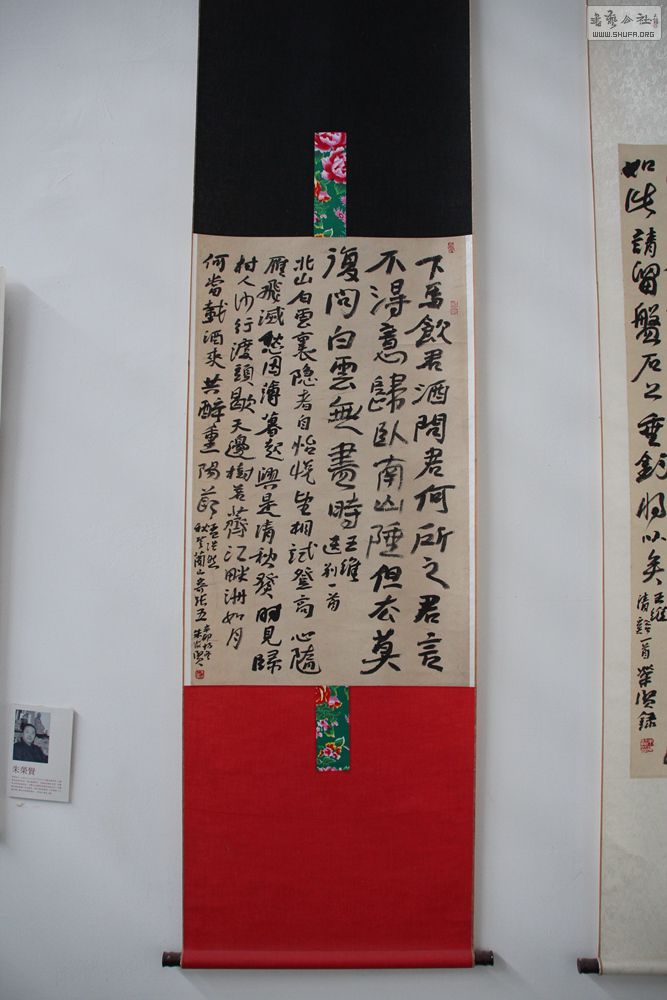 書藝公社
WWW.SHUFA.ORG
如此請留盤石上垂釣將以矣
王維
清谿一首 榮賢錄
下馬飲君酒問君何所之君言
不得意歸臥南山陲但去莫
復問白雲無盡時
王維
送別一首
北山白雲裏隱者自怡悅望相試登高心隨
雁飛滅愁因薄暮起興是清秋發時見歸
村人沙行渡頭歇天邊樹若薺江畔洲如月
何當載酒來共醉重陽節
孟浩然
秋登蘭山寄張五
辛卯
朱榮賢
朱榮賢